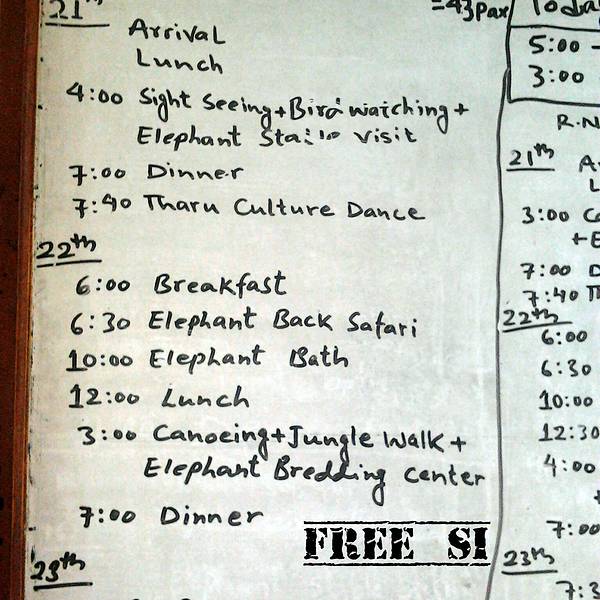 21st
Arrival
Lunch
4:00 Sight Seeing+Bird watching+
Elephant Visit
7:00 Dinner
7:40 Tharu Culture Dance
22th
6:00 Breakfast
6:30 Elephant Back Safari
10:00 Elephant Bath
12:00 Lunch
3:00 Canoeing+Jungle Walk+
Elephant Bredding center
7:00 Dinner
23th
=43Pax
5:00 -
3:00
R.N
21th
3:00
7:00
7:40
22th
6:00
6:30
10:00
12:30
4:00
7:00
23th
FREE SI